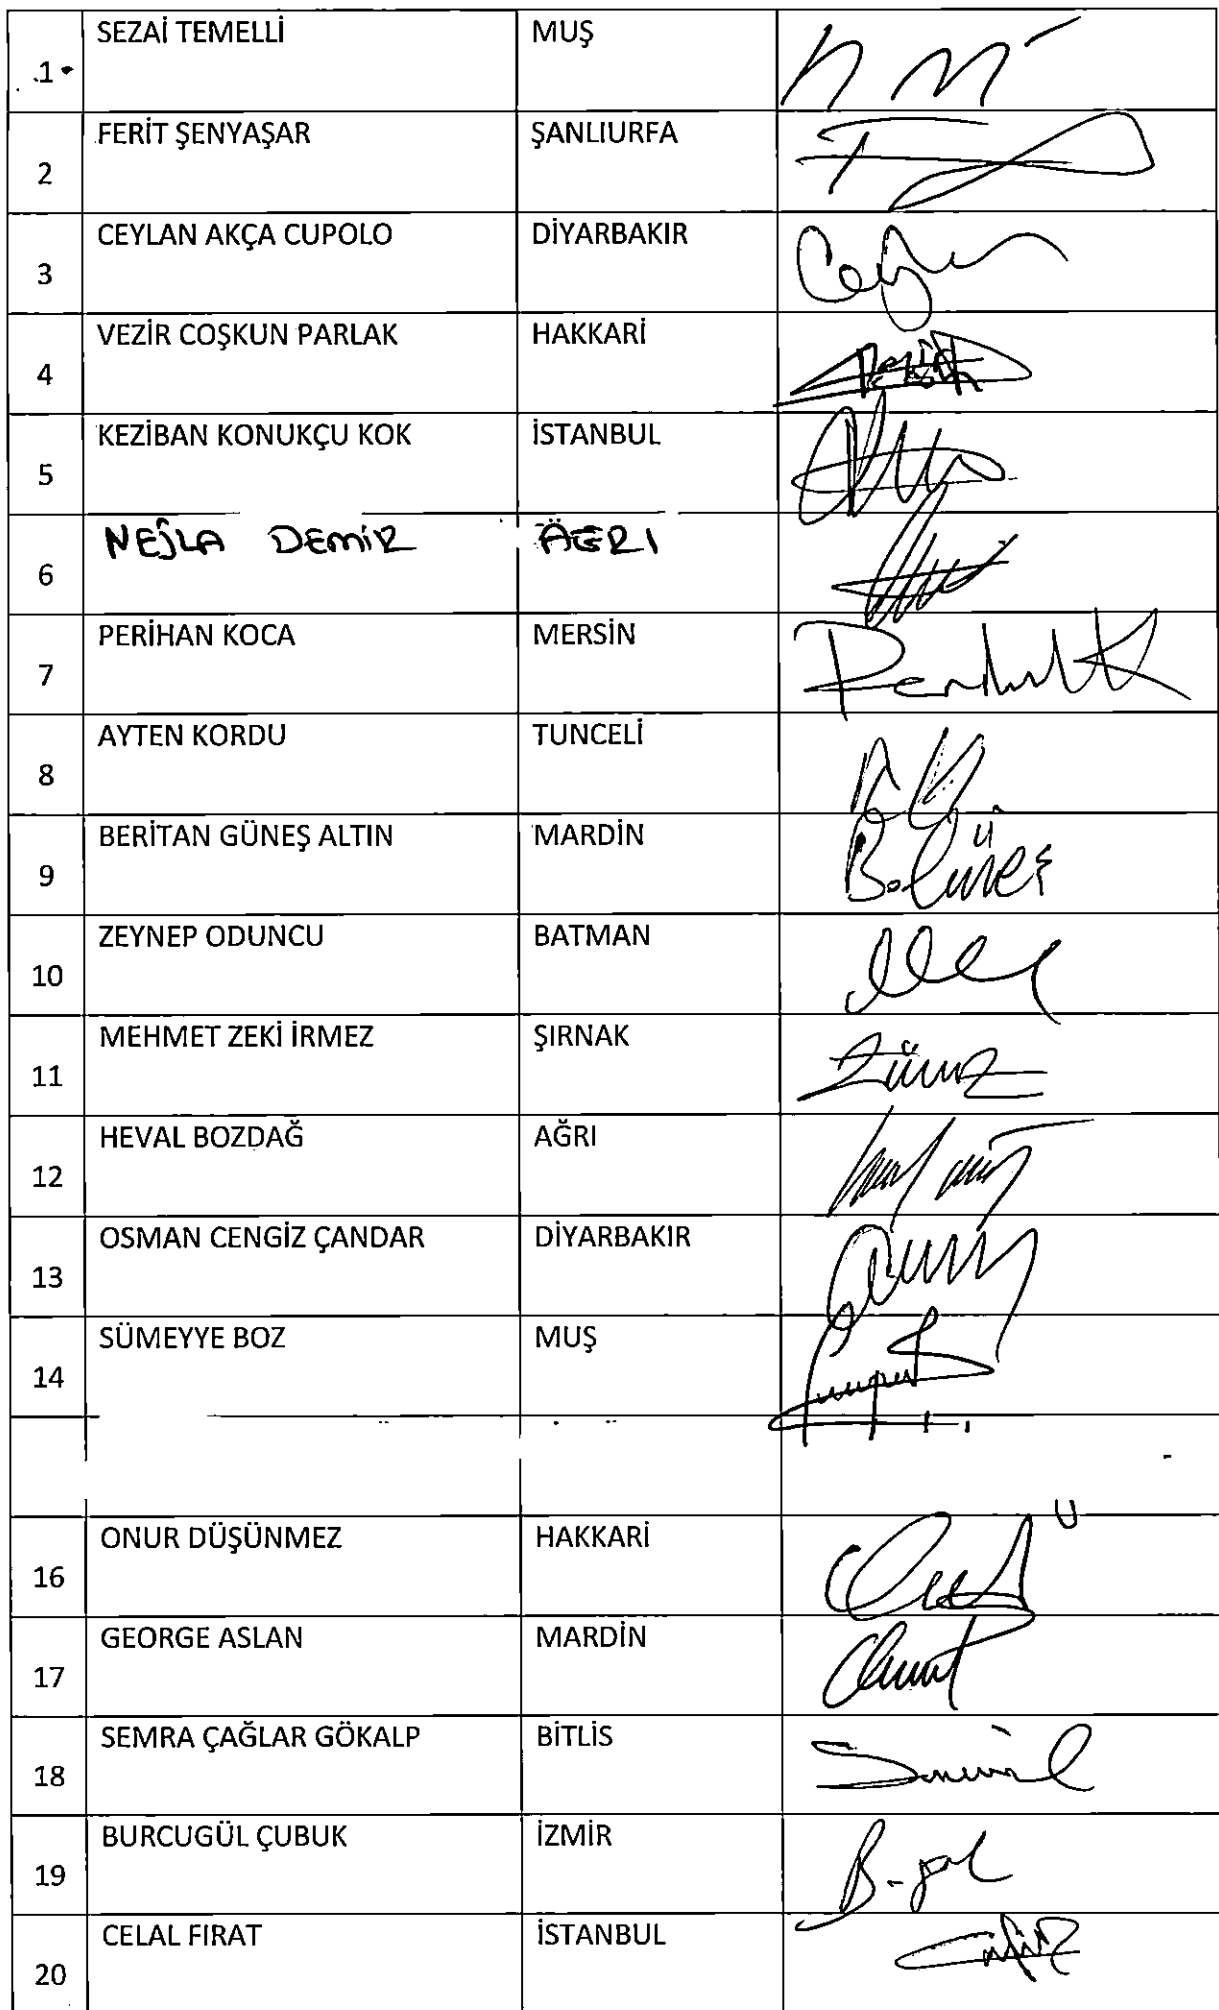 1 SEZAİ TEMELLİ MUŞ
2 FERİT ŞENYAŞAR ŞANLIURFA
3 CEYLAN AKÇA CUPOLO DİYARBAKIR
4 VEZİR COŞKUN PARLAK HAKKARİ
5 KEZİBAN KONUKÇU KOK İSTANBUL
6 NEJLA DEMİR AĞRI
7 PERİHAN KOCA MERSİN
8 AYTEN KORDU TUNCELİ
9 BERİTAN GÜNEŞ ALTIN MARDİN B. Güneş
10 ZEYNEP ODUNCU BATMAN
11 MEHMET ZEKİ İRMEZ ŞIRNAK
12 HEVAL BOZDAĞ AĞRI
13 OSMAN CENGİZ ÇANDAR DİYARBAKIR
14 SÜMEYYE BOZ MUŞ
16 ONUR DÜŞÜNMEZ HAKKARİ
17 GEORGE ASLAN MARDİN
18 SEMRA ÇAĞLAR GÖKALP BİTLİS
19 BURCUGÜL ÇUBUK İZMİR
20 CELAL FIRAT İSTANBUL